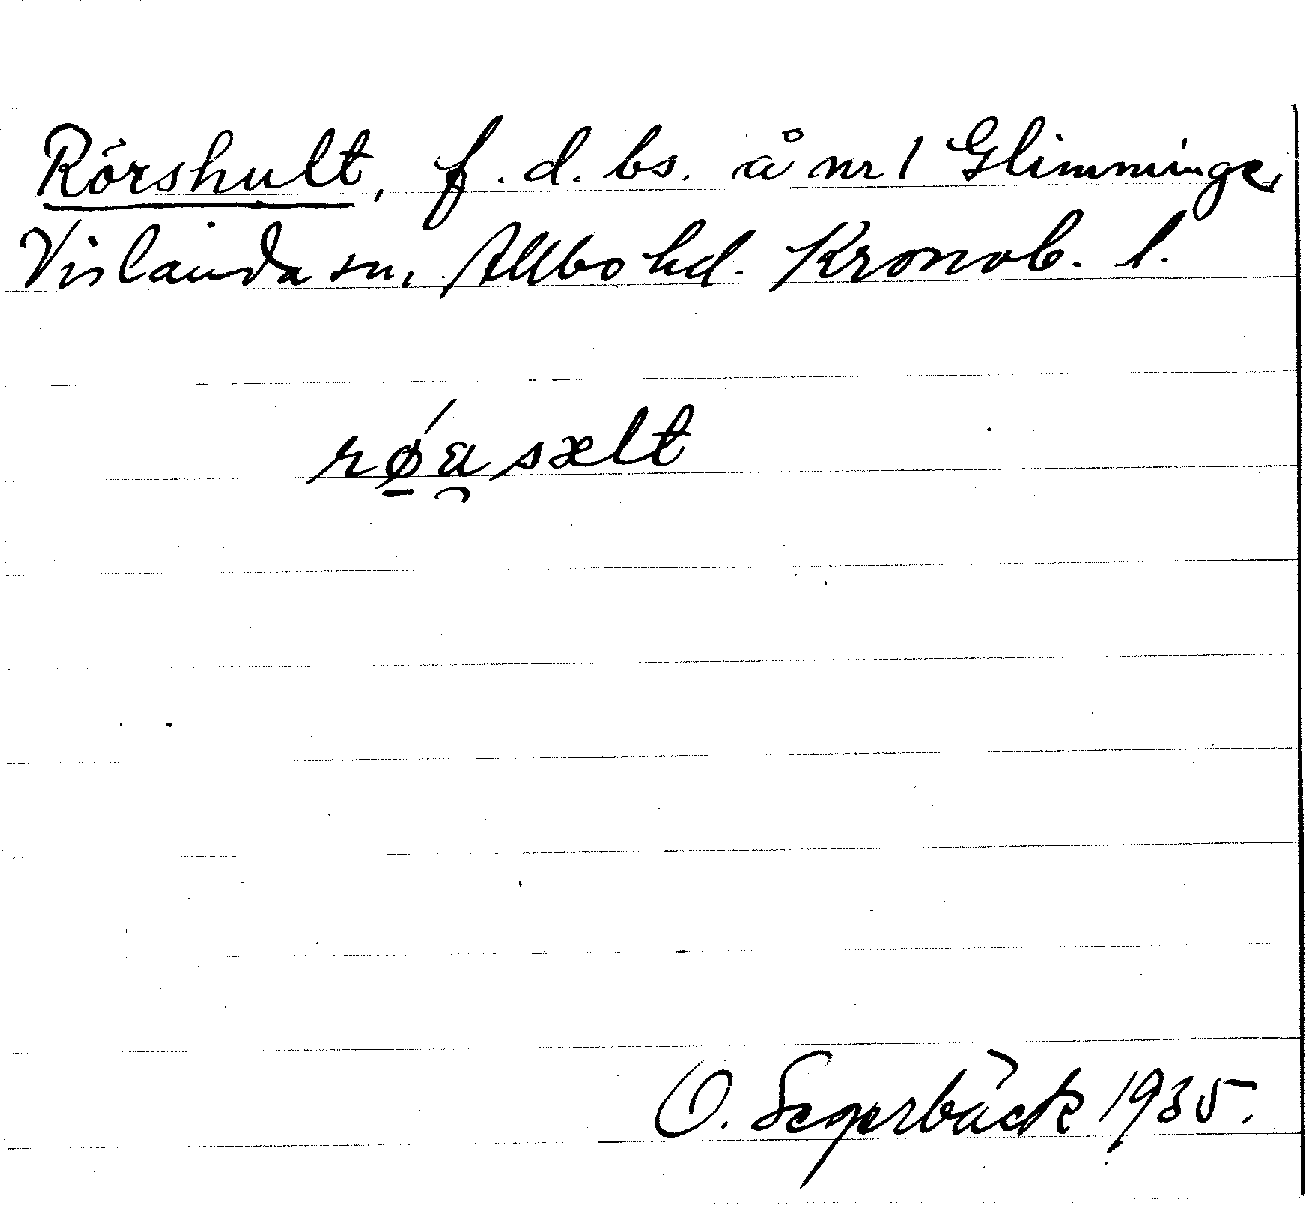 Rörshult, f. d. bs. å nr 1 Glimminge,
Vislanda sn, Allbo hd. Kronob. l.
rǿ̱ɐ̯sælt
O. Segerbäck 1935.